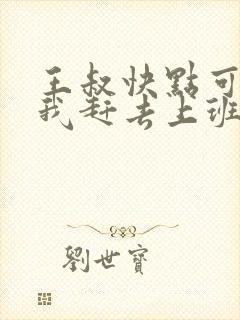 王叔快點可
我趕去上班
劉世寶